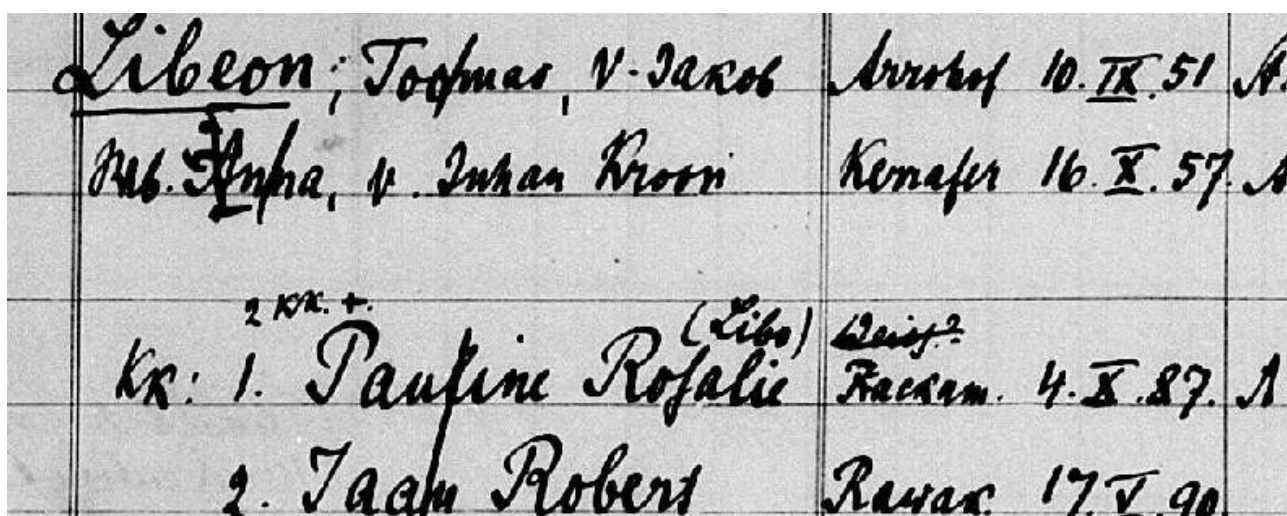 Libeon, Toomas, v. Jakob Arrohof 10. IX. 51 A.
Wb. Anna, v. Juhan Kroon Kerrafer 16. X. 57. A
2 KK. +. (Libo)
KK: 1. Pauline Rosalie Rackam. 4. X. 87. A
2. Jaan Robert 17. V. 90